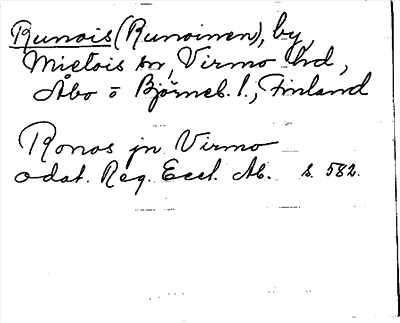 Runois (Runoinen), by,
Mietois sn, Virmo hd,
Åbo o Björneb. l., Finland
Ronos jn Virmo
odat. Reg. Eccl. Ab. s. 582.